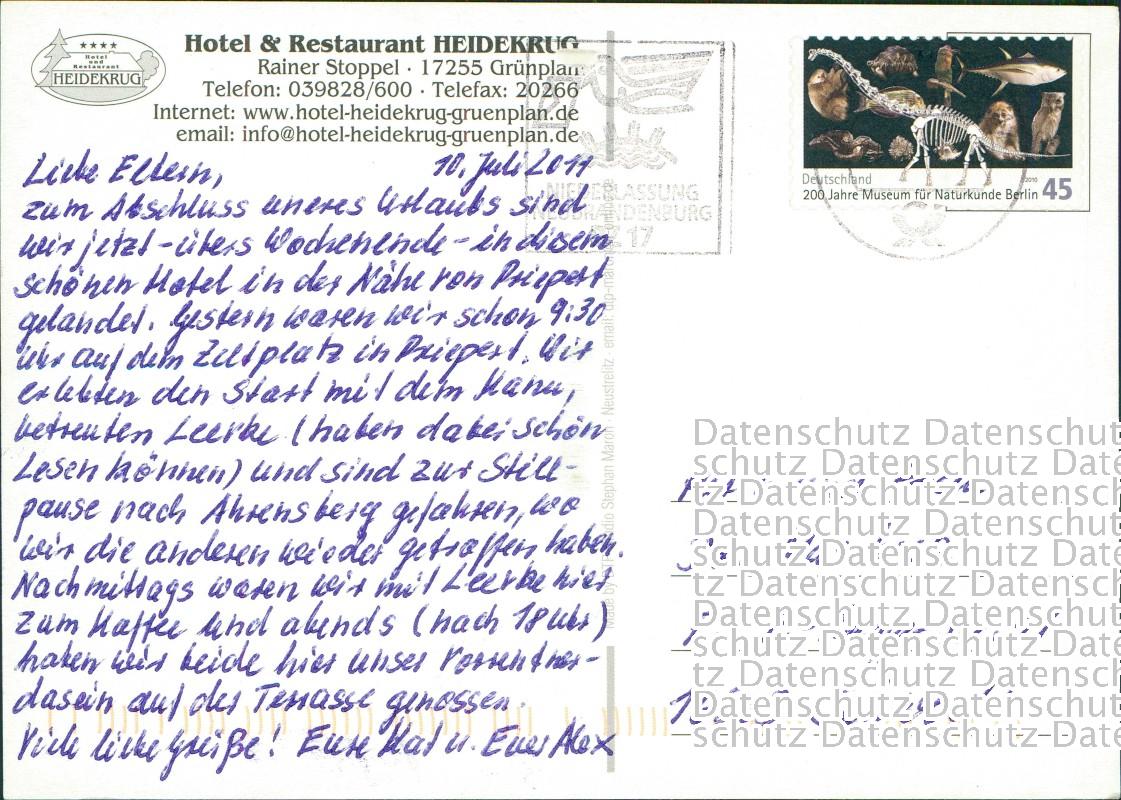 ★★★★
Hotel
und
Restaurant
HEIDEKRUG
Hotel & Restaurant HEIDEKRUG
Rainer Stoppel · 17255 Grünplan
Telefon: 039828/600 · Telefax: 20266
Internet: www.hotel-heidekrug-gruenplan.de
email: info@hotel-heidekrug-gruenplan.de
Liebe Eltern, 10. Juli 2011
zum Abschluss unseres Urlaubs sind
wir jetzt - übers Wochenende - in diesem
schönen Hotel in der Nähe von Priepert
gelandet. Gestern waren wir schon 9:30
Uhr auf dem Zeltplatz in Priepert. Wir
erlebten den Start mit dem Kanu,
betreuten Leerke (haben dabei schön
Lesen können) und sind zur Still-
pause nach Ahrensberg gefahren, wo
wir die anderen wieder getroffen haben.
Nachmittags waren wir mit Leerke hier
zum Kaffee und abends (nach 18 Uhr)
haben wir beide hier unser Vorrentner-
dasein auf der Terrasse genossen.
Viele liebe Grüße! Eure u. Euer Alex
NIEDERLASSUNG
NEUBRANDENBURG
BZ 17
Deutschland 2010
200 Jahre Museum für Naturkunde Berlin 45
Studio Stephan Maron · Neustrelitz · email:
Datenschutz Datenschut
schutz Datenschutz Date
tz Datenschutz Datensch
Datenschutz Datenschut
schutz Datenschutz Date
tz Datenschutz Datensch
Datenschutz Datenschut
schutz Datenschutz Date
tz Datenschutz Datensch
Datenschutz Datenschut
schutz Datenschutz Date